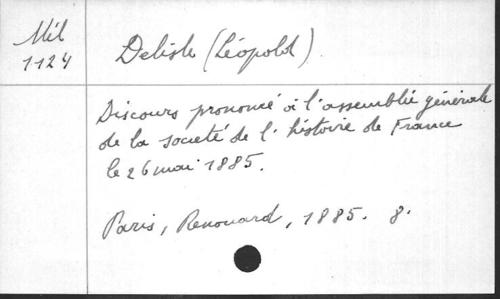 Mél
1124
Delisle (Léopold).
Discours prononcé à l'assemblée générale
de la société de l'histoire de France
le 26 mai 1885.
Paris, Renouard, 1885. 8.